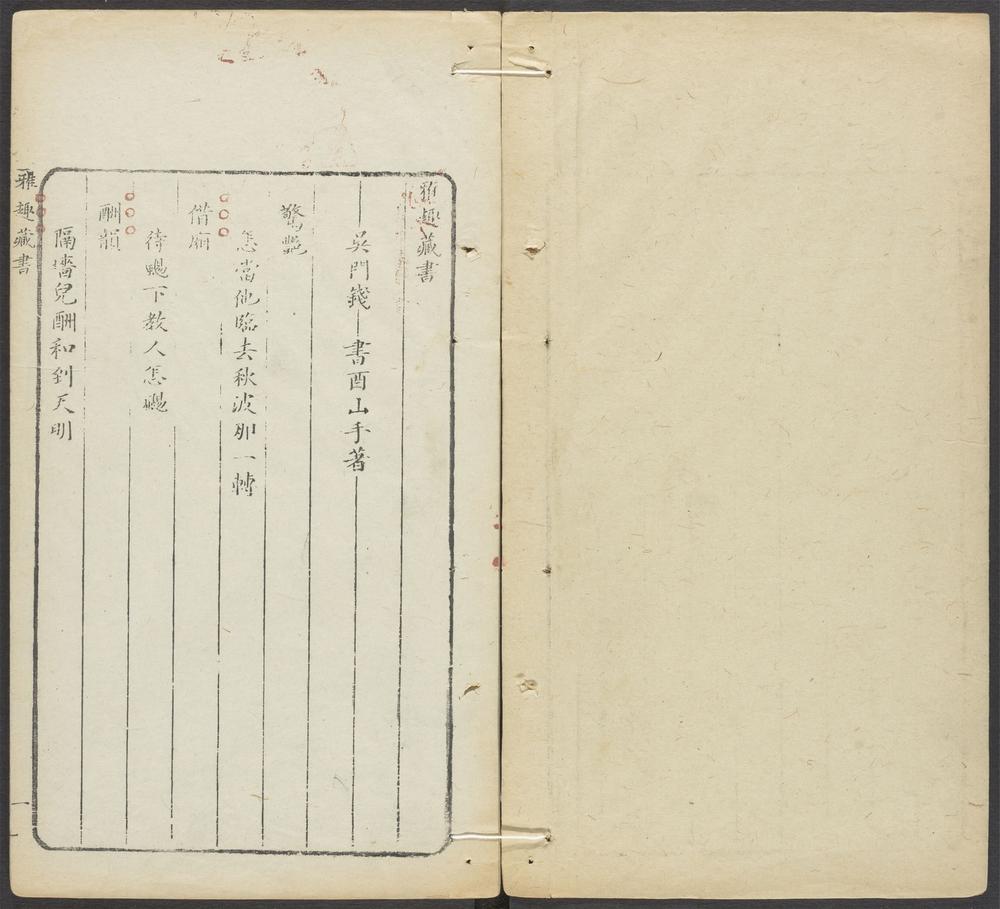 雅趣藏書
吳門錢書酉山手著
驚艷
怎當他臨去秋波那一轉
借廂
待颺下教人怎颺
酬韻
隔墻兒酬和到天明
雅趣藏書
一